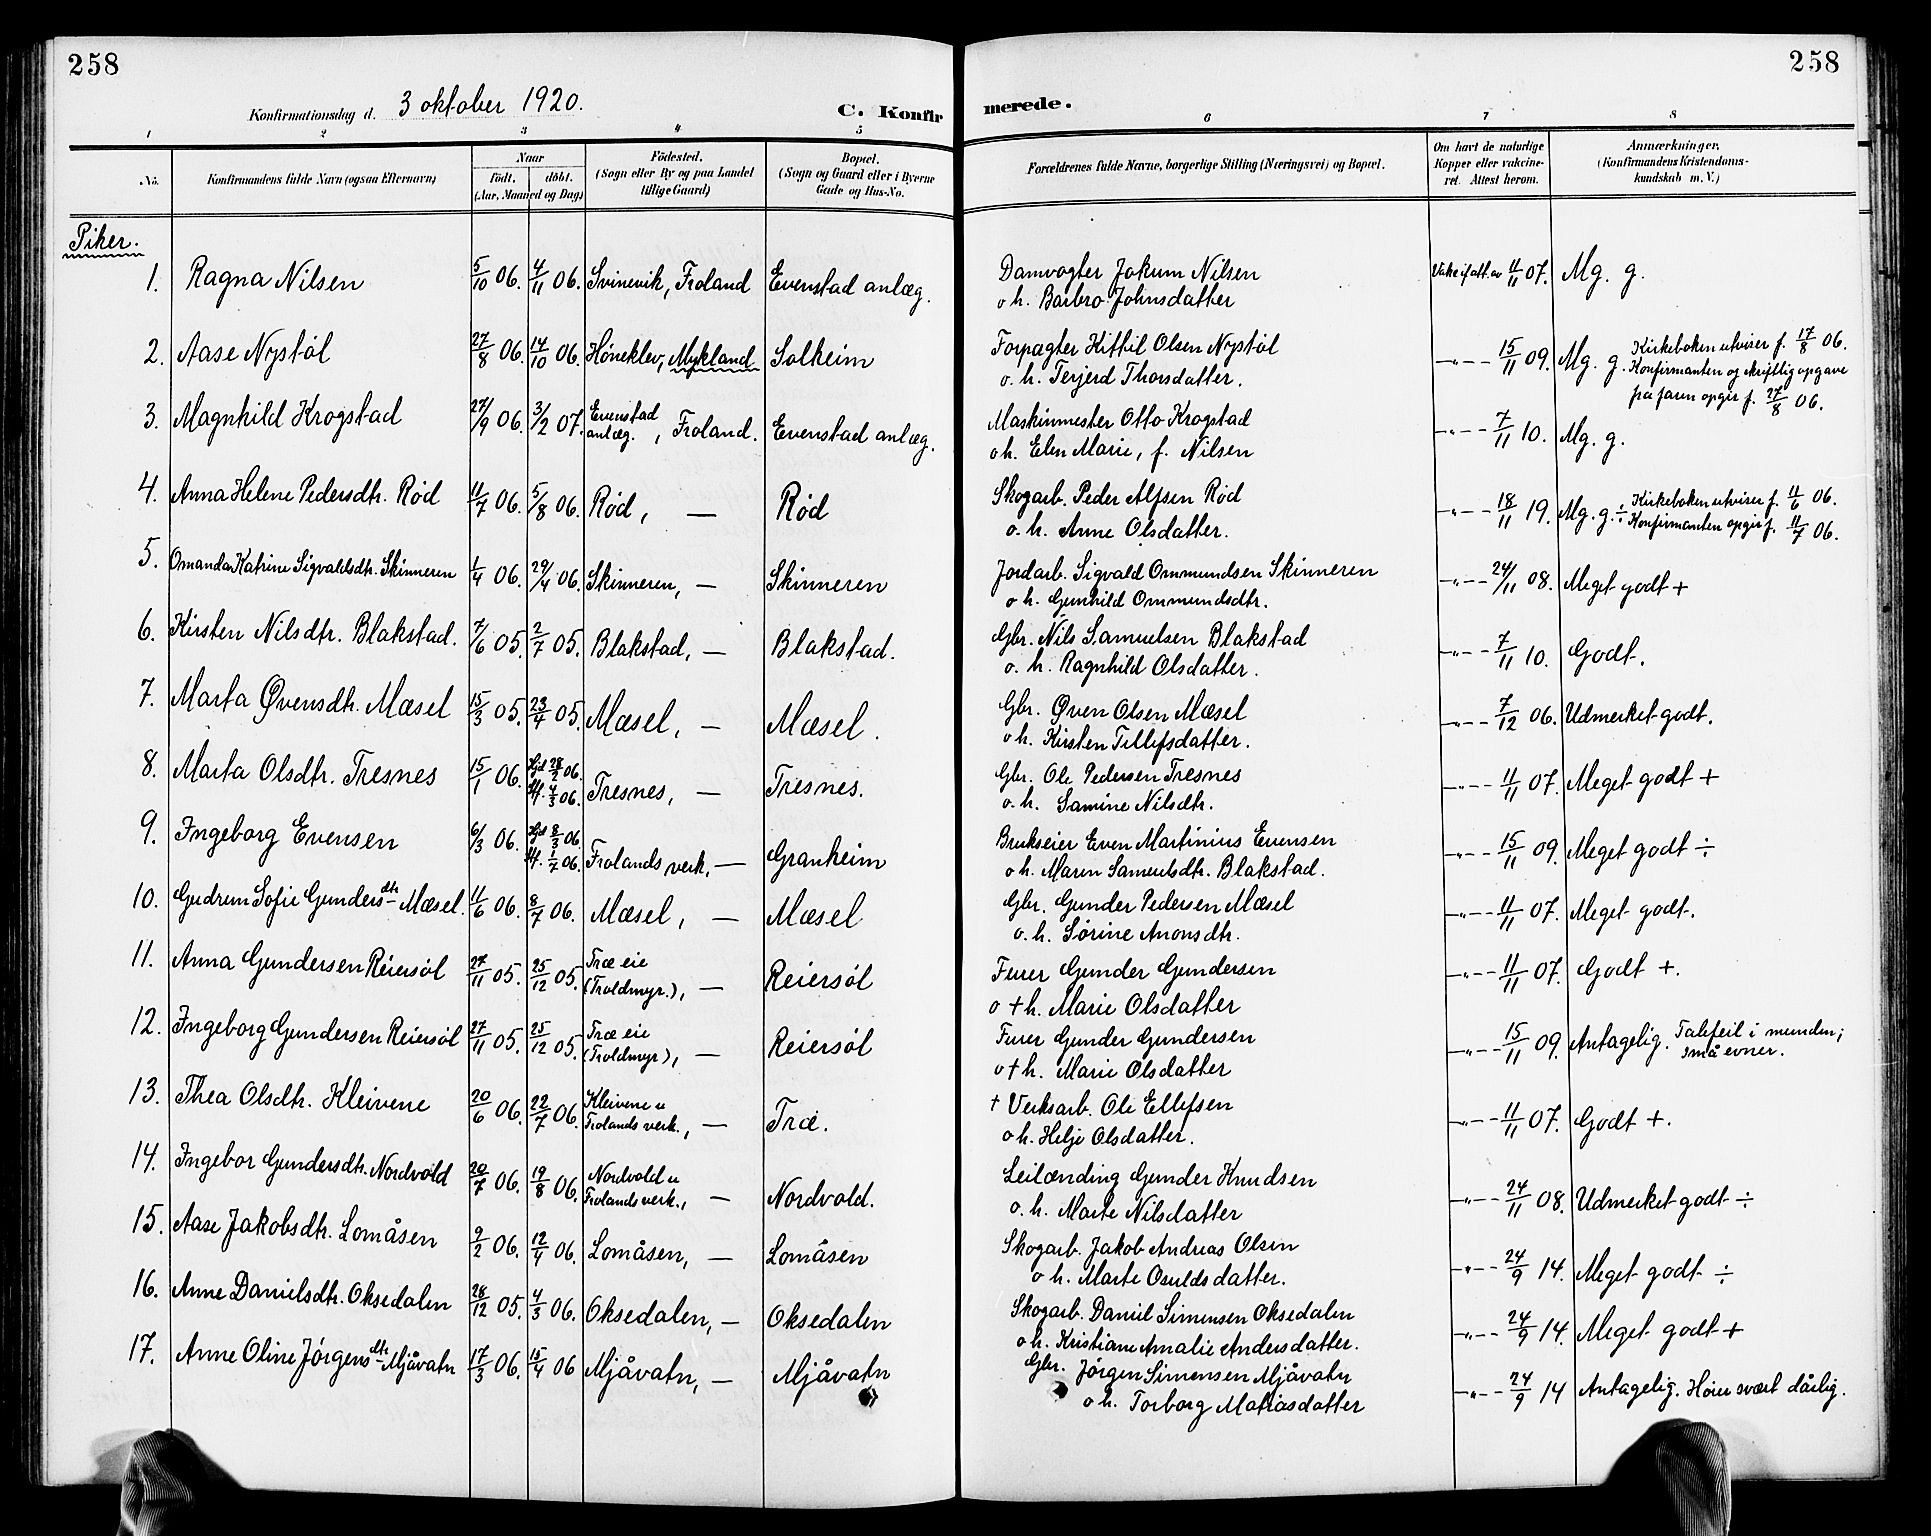 258
258
Konfirmationsdag d. 3 oktober 1920.
C. Konfirmerede.
1 2 3 4 5 6 7 8
No.
Konfirmandens fulde Navn (ogsaa Efternavn)
Naar
født. døbt.
(Aar, Maaned og Dag)
Fødested.
(Sogn eller By og paa Landet
tillige Gaard)
Bopæl.
(Sogn og Gaard eller i Byerne
Gade og Hus-No.
Forældrenes fulde Navne, borgerlige Stilling (Næringsvei) og Bopæl.
Om havt de naturlige
Kopper eller vakcine-
ret. Attest herom.
Anmærkninger.
(Konfirmandens Kristendoms-
kundskab m. V.)
Piker.
1. Ragna Nilsen 5/10 06. 4/11 06. Svinevik, Froland Evenstad anlæg. Damvogter Jokum Nilsen 4/11 07. Mg. g.
o h. Barbro Johnsdatter
2. Aase Nystøl 27/8 06. 14/10 06. Høneklev, Mykland Solheim Forpagter Kittil Olsen Nystøl -"- 15/11 09. Mg. g. Kirkeboken utviser f. 17/8 06.
o. h. Terjerd Thorsdatter. Konfirmanten og skriftlig opgave
fra faren opgir f. 27/8 06.
3. Magnhild Krogstad 27/9 06. 3/2 07. Evenstad anlæg., Froland. Evenstad anlæg. Maskinmester Otto Krogstad -"- 7/11 10. Mg. g.
o h. Elen Marie, f. Nilsen
4. Anna Helene Pedersdtr. Rød 11/7 06. 5/8 06. Rød, — Rød Skogarb. Peder Alfsen Rød -"- 18/11 19. Mg. g. ÷ Kirkeboken utviser f. 11/6 06.
o. h. Anne Olsdatter. Konfirmanten opgir f. 11/7 06.
5. Omanda Katrine Sigvaldsdtr. Skinneren 1/4 06. 29/4 06. Skinneren, — Skinneren Jordarb. Sigvald Ommundsen Skinneren -"- 24/11 08. Meget godt +
o h. Gunhild Ommundsdtr.
6. Kirsten Nilsdtr. Blakstad. 7/6 05. 2/7 05. Blakstad, — Blakstad. Gbr. Nils Samuelsen Blakstad -"- 7/11 10. Godt.
o. h. Ragnhild Olsdatter.
7. Marta Øvensdtr. Mæsel 15/3 05. 23/4 05. Mæsel, — Mæsel. Gbr. Øven Olsen Mæsel -"- 7/12 06. Udmerket godt.
o h. Kirsten Tellefsdatter.
8. Marta Olsdtr. Tresnes 15/1 06. Hjd 28/2 06. Tresnes, — Tresnes. Gbr. Ole Pedersen Tresnes -"- 11/11 07. Meget godt +
St. 4/3 06. o. h. Samine Nilsdtr.
9. Ingeborg Evensen 6/3 06. Hjd 8/3 06. Frolands verk, — Granheim Brukseier Even Martinius Evensen -"- 15/11 09. Meget godt ÷
St. 1/7 06. o h. Maren Samuelsdtr. Blakstad.
10. Gudrun Sofie Gundersdtr. Mæsel. 11/6 06. 8/7 06. Mæsel, — Mæsel Gbr. Gunder Pedersen Mæsel -"- 11/11 07. Meget godt.
o. h. Sørine Anonsdtr.
11. Anna Gundersen Reiersøl 27/11 05. 25/12 05. Træ eie (Troldmyr.), — Reiersøl Furer Gunder Gundersen -"- 11/11 07. Godt +.
o + h. Marie Olsdatter
12. Ingeborg Gundersen Reiersøl 27/11 05. 25/12 05. Træ eie (Troldmyr), — Reiersøl Furer Gunder Gundersen -"- 15/11 09. Antagelig. Talefeil i munden;
o + h. Marie Olsdatter små evner.
13. Thea Olsdtr. Kleivene 20/6 06. 22/7 06. Kleivene u Frolands verk., — Træ. + Verksarb. Ole Ellefsen -"- 11/11 07. Godt +.
o h. Helje Olsdatter.
14. Ingebor Gundersdtr. Nordvold 20/7 06. 19/8 06. Nordvold u Frolands verk., — Nordvold. Leilænding Gunder Knudsen -"- 24/11 08. Udmerket godt ÷
o. h. Marte Nilsdatter
15. Aase Jakobsdtr. Lomåsen 9/2 06. 12/4 06. Lomåsen, — Lomåsen Skogarb. Jakob Andreas Olsen -"- 24/9 14. Meget godt ÷
o h. Marte Osuldsdatter.
16. Anne Danielsdtr. Oksedalen 28/12 05. 4/3 06. Oksedalen, — Oksedalen Skogarb. Daniel Simensen Oksedalen -"- 24/9 14. Meget godt +
o h. Kristiane Amalie Andersdatter.
17. Anne Oline Jørgensdtr. Mjåvatn 17/3 06. 15/4 06 Mjåvatn, — Mjåvatn Gbr. Jørgen Simensen Mjåvatn -"- 24/9 14 Antagelig. Hører svært dårlig.
o h. Torborg Matiasdatter